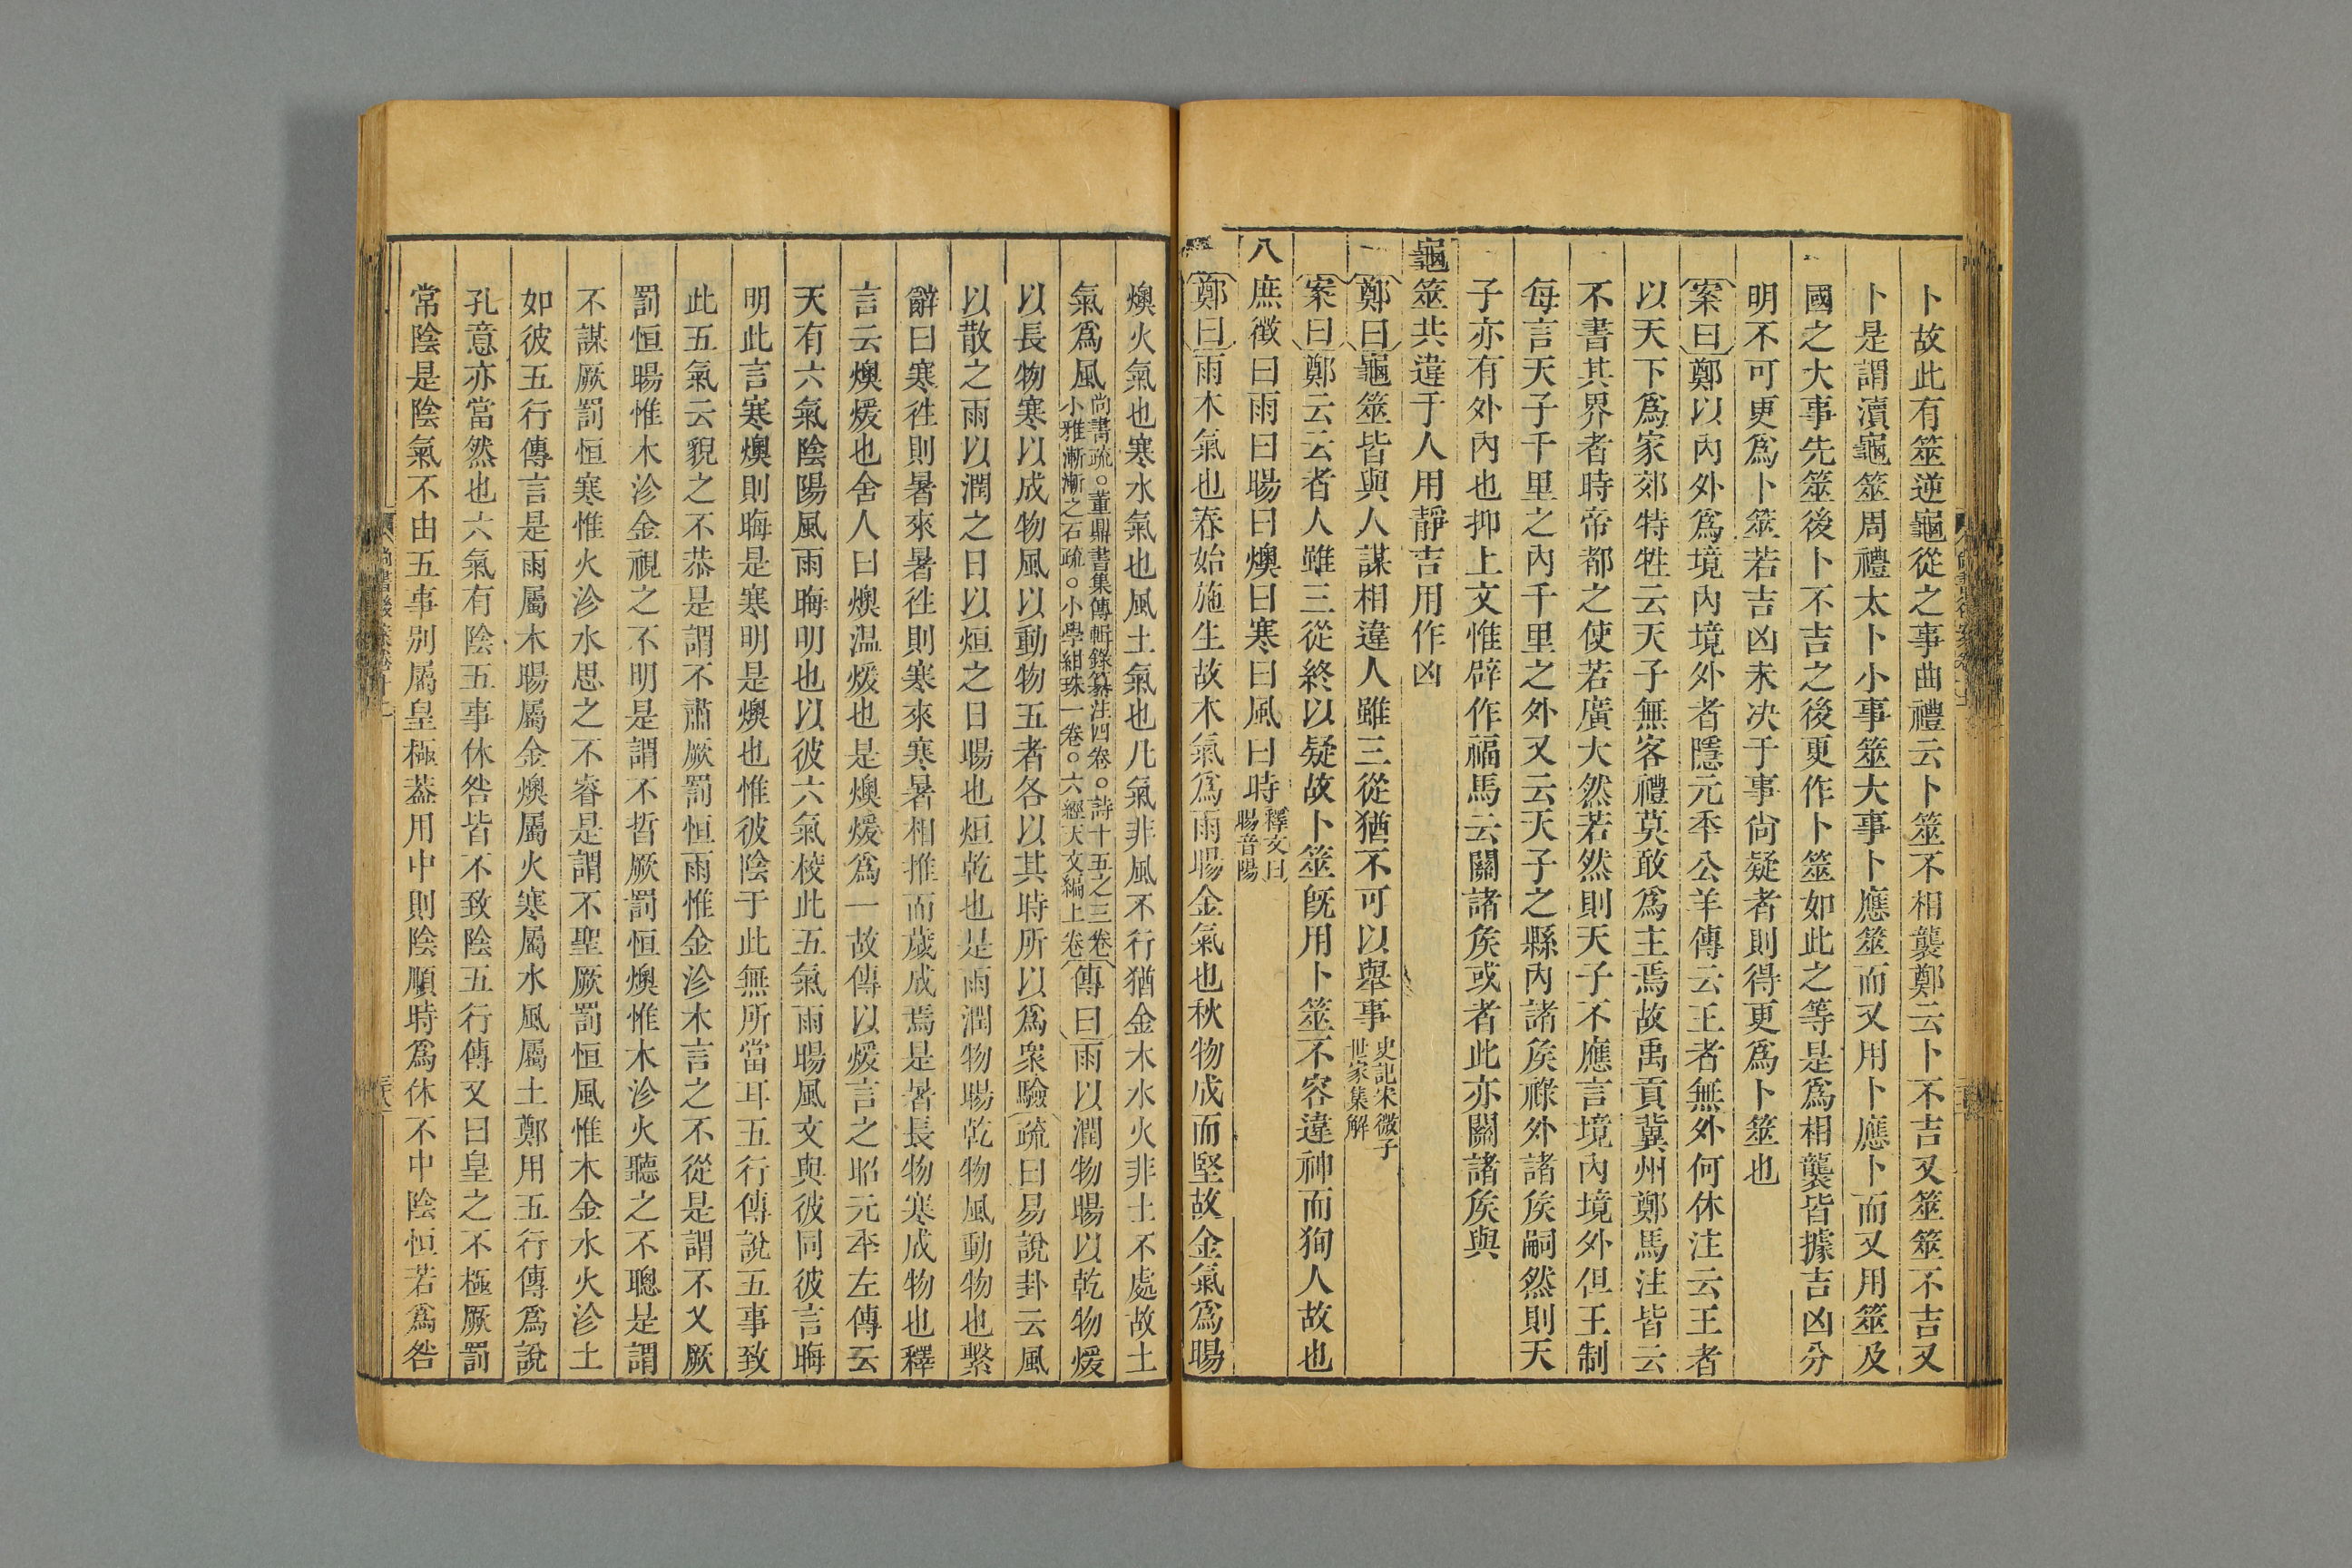 卜故此有筮逆龜從之事曲禮云卜筮不相襲鄭云卜不吉又筮筮不吉又
卜是謂瀆龜筮周禮太卜小事筮大事卜應筮而又用卜應卜而又用筮及
國之大事先筮後卜不吉之後更作卜筮如此之等是爲相襲皆據吉凶分
明不可更爲卜筮若吉凶未決于事尙疑者則得更爲卜筮也
案曰鄭以內外爲境內境外者隱元年公羊傳云王者無外何休注云王者
以天下爲家郊特牲云天子無客禮莫敢爲主焉故禹貢冀州鄭馬注皆云
不書其界者時帝都之使若廣大然若然則天子不應言境內境外但王制
每言天子千里之內千里之外又云天子之縣內諸矦祿外諸矦嗣然則天
子亦有外內也抑上文惟辟作福馬云關諸矦或者此亦關諸矦與
龜筮共違于人用靜吉用作凶
鄭曰龜筮皆與人謀相違人雖三從猶不可以舉事史記宋微子世家集解
案曰鄭云云者人雖三從終以疑故卜筮旣用卜筮不容違神而狥人故也
八庶徵曰雨曰暘曰燠曰寒曰風曰時釋文曰暘音陽
鄭曰雨木氣也春始施生故木氣爲雨暘金氣也秋物成而堅故金氣爲暘
燠火氣也寒水氣也風土氣也凡氣非風不行猶金木水火非土不處故土
氣爲風尙書疏○董鼎書集傳輯錄纂注四卷○詩十五之三卷小雅漸漸之石疏○小學紺珠一卷○六經天文編上卷傳曰雨以潤物暘以乾物煖
以長物寒以成物風以動物五者各以其時所以爲衆驗疏曰易說卦云風
以散之雨以潤之日以烜之日暘也烜乾也是雨潤物暘乾物風動物也繫
辭曰寒往則暑來暑往則寒來寒暑相推而歲成焉是暑長物寒成物也釋
言云燠煖也舍人曰燠温煖也是燠煖爲一故傳以煖言之昭元年左傳云
天有六氣陰陽風雨晦明也以彼六氣校此五氣雨暘風文與彼同彼言晦
明此言寒燠則晦是寒明是燠也惟彼陰于此無所當耳五行傳說五事致
此五氣云貌之不恭是謂不肅厥罰恒雨惟金沴木言之不從是謂不乂厥
罰恒暘惟木沴金視之不明是謂不哲厥罰恒燠惟水沴火聽之不聰是謂
不謀厥罰恒寒惟火沴水思之不睿是謂不聖厥罰恒風惟木金水火沴土
如彼五行傳言是雨屬木暘屬金燠屬火寒屬水風屬土鄭用五行傳爲說
孔意亦當然也六氣有陰五事休咎皆不致陰五行傳又曰皇之不極厥罰
常陰是陰氣不由五事別屬皇極葢用中則陰順時爲休不中陰恒若爲咎